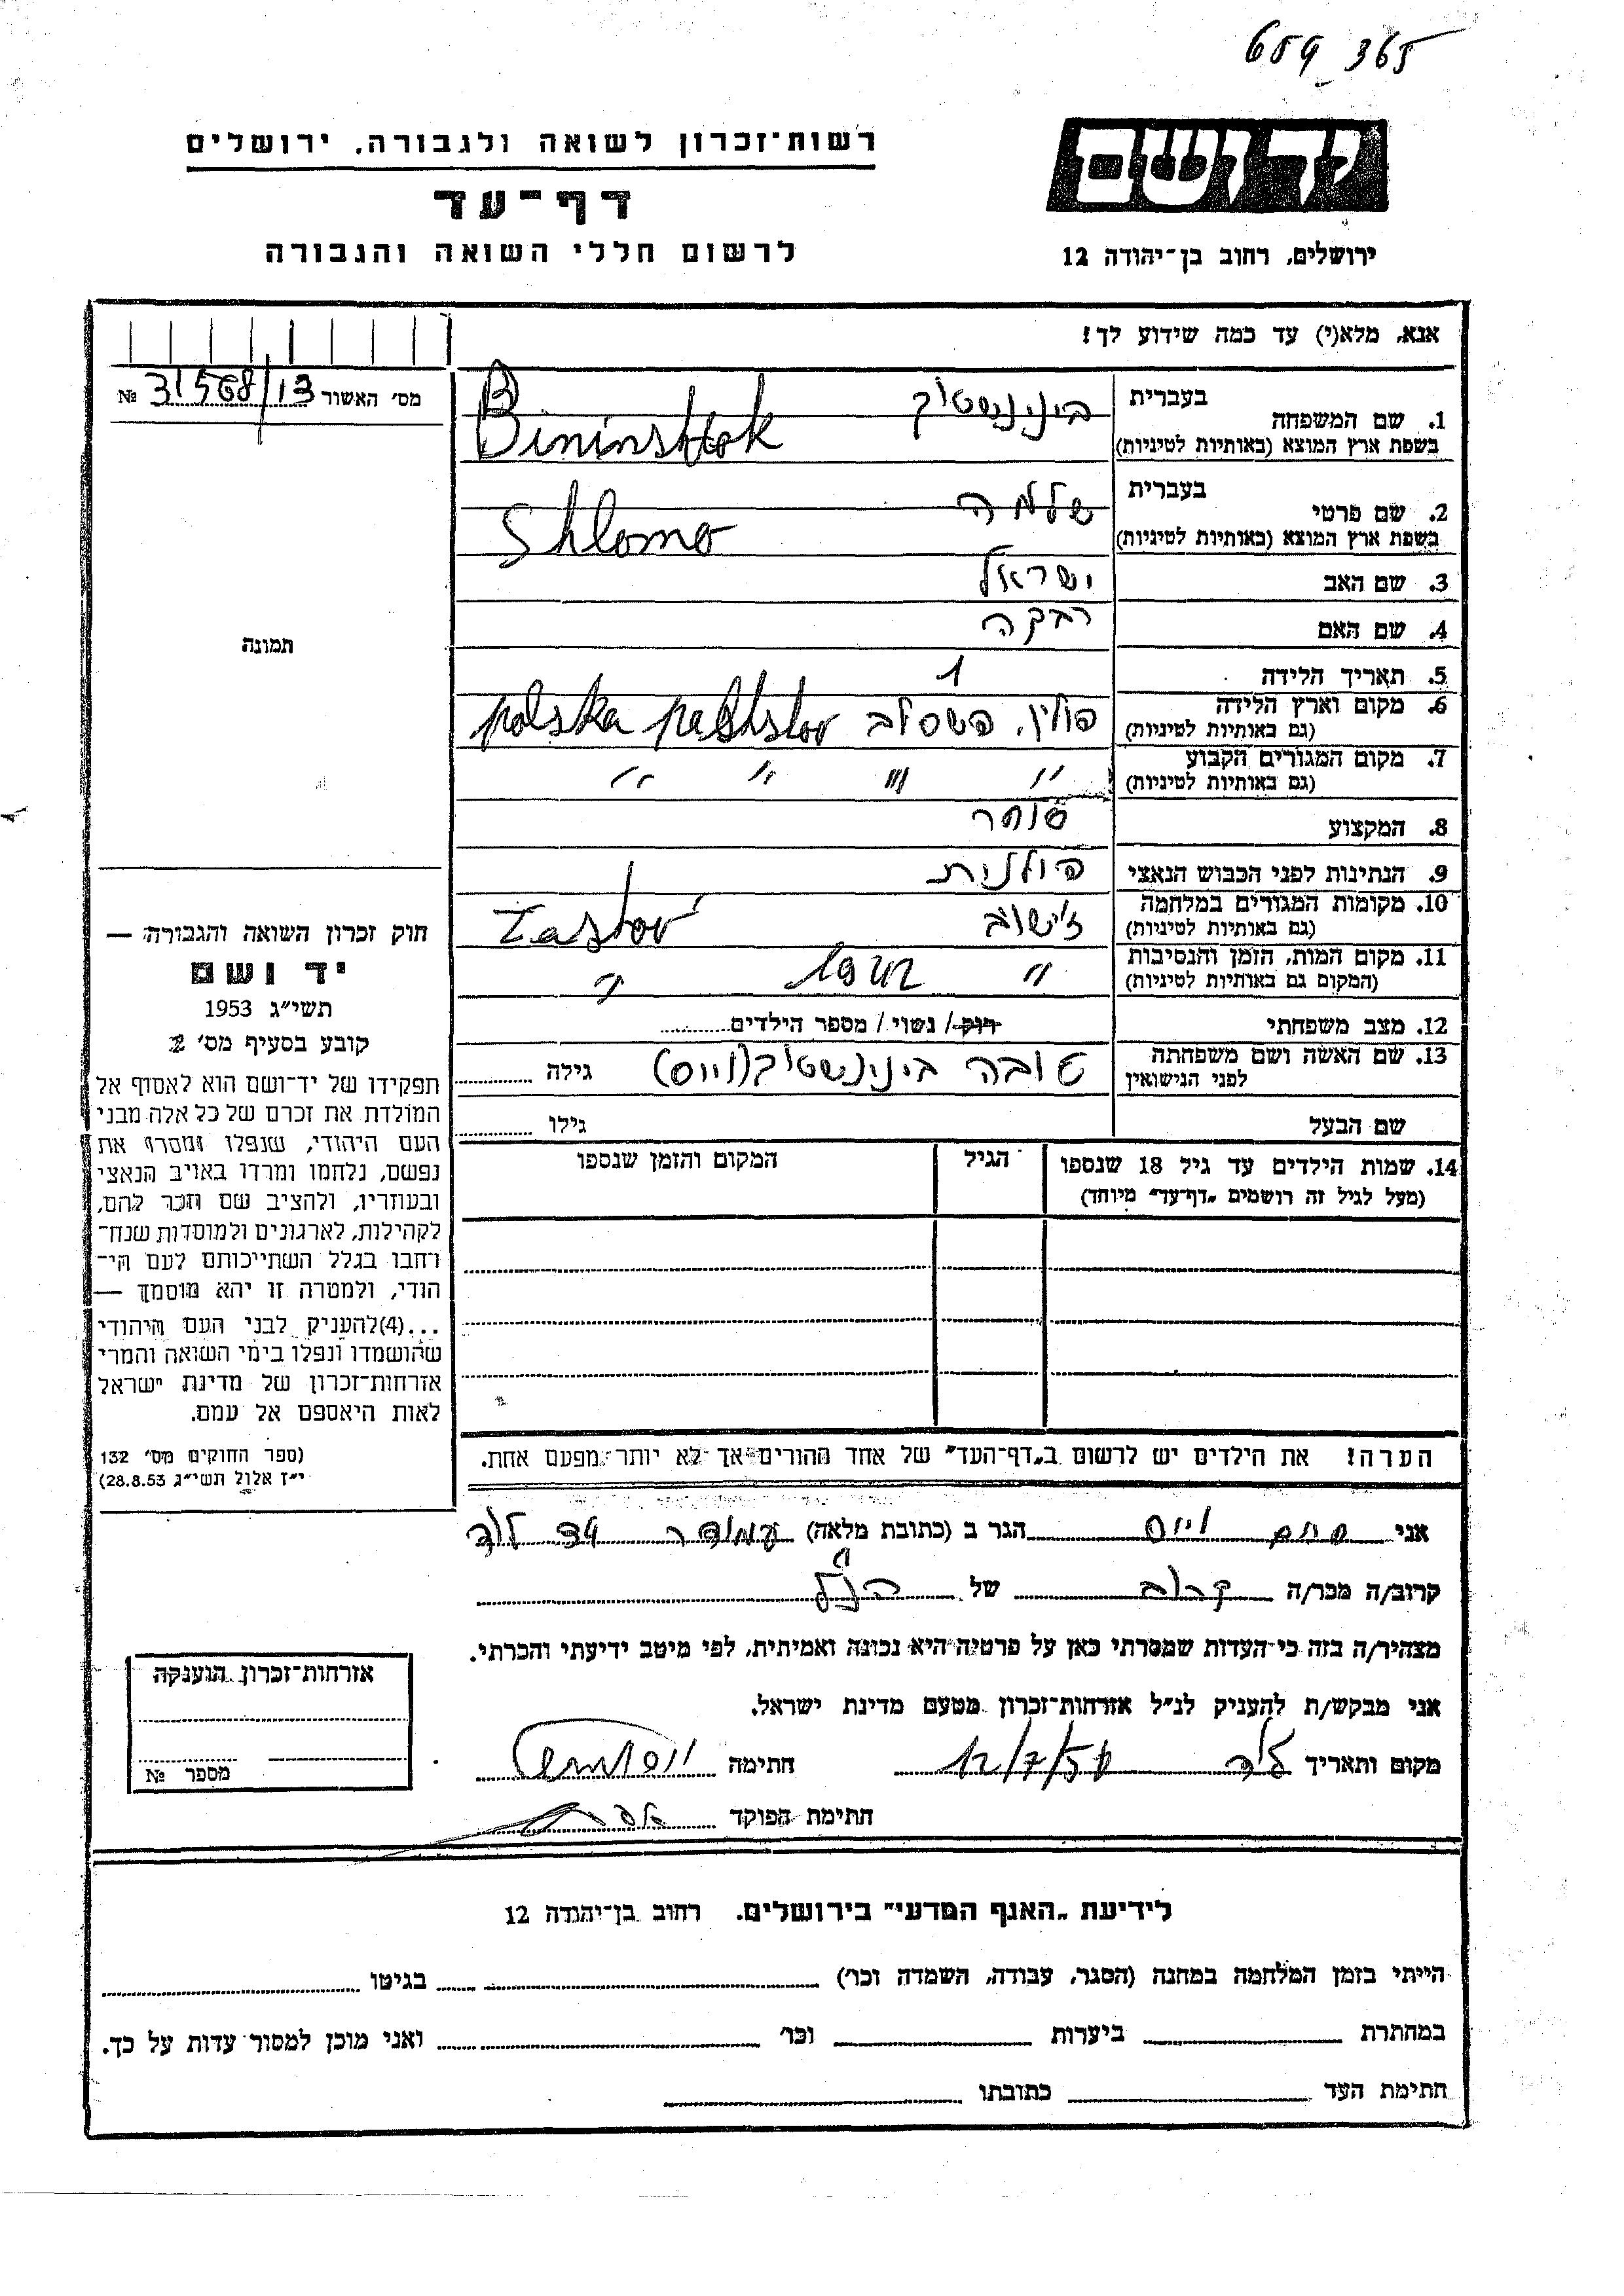 659_365
יד ושם
רשות־זכרון לשואה ולגבורה, ירושלים
דף־עד
לרשום חללי השואה והגבורה
ירושלים, רחוב בן־יהודה 12
אנא, מלא(י) עד כמה שידוע לך!
מס׳ האשור 31568/13 №
1. שם המשפחה
בעברית בינינשטוק
בשפת ארץ המוצא (באותיות לטיניות) Bininshtok
2. שם פרטי
בעברית שלמה
בשפת ארץ המוצא (באותיות לטיניות) Shlomo
3. שם האב ישראל
4. שם האם רבקה
תמונה
5. תאריך הלידה
6. מקום וארץ הלידה
(גם באותיות לטיניות) פולין, polska
7. מקום המגורים הקבוע
(גם באותיות לטיניות) " " " "
8. המקצוע סוחר
9. הנתינות לפני הכבוש הנאצי פולנית
10. מקומות המגורים במלחמה
(גם באותיות לטיניות)
11. מקום המות, הזמן והנסיבות
(המקום גם באותיות לטיניות) " 1942 "
12. מצב משפחתי רווק/ נשוי/ מספר הילדים
13. שם האשה ושם משפחתה
לפני הנישואין טובה בינינשטוק (וייס) גילה
שם הבעל גילו
14. שמות הילדים עד גיל 18 שנספו
(מעל לגיל זה רושמים „דף־עד״ מיוחד)
הגיל
המקום והזמן שנספו
הערה! את הילדים יש לרשום ב„דף־העד״ של אחד ההורים אך לא יותר מפעם אחת.
חוק זכרון השואה והגבורה —
יד ושם
תשי״ג 1953
קובע בסעיף מס׳ 2
תפקידו של יד־ושם הוא לאסוף אל
המולדת את זכרם של כל אלה מבני
העם היהודי, שנפלו ומסרו את
נפשם, נלחמו ומרדו באויב הנאצי
ובעוזריו, ולהציב שם וזכר להם,
לקהילות, לארגונים ולמוסדות שנח־
רחבו בגלל השתייכותם לעם הי־
הודי, ולמטרה זו יהא מוסמך —
...(4)להעניק לבני העם היהודי
שהושמדו ונפלו בימי השואה והמרי
אזרחות־זכרון של מדינת ישראל
לאות היאספם אל עמם.
(ספר החוקים מס׳ 132
י״ז אלול תשי״ג 28.8.53)
אני וייס הגר ב (כתובת מלאה) לוד
קרוב/ה מכר/ה קרוב של הנ״ל
מצהיר/ה בזה כי העדות שמסרתי כאן על פרטיה היא נכונה ואמיתית, לפי מיטב ידיעתי והכרתי.
אני מבקש/ת להעניק לנ״ל אזרחות־זכרון מטעם מדינת ישראל.
מקום ותאריך לוד 12/7/56 חתימה
חתימת הפוקד
אזרחות־זכרון הוענקה
מספר №
לידיעת „האגף המדעי״ בירושלים. רחוב בן־יהודה 12
הייתי בזמן המלחמה במחנה (הסגר, עבודה, השמדה וכו׳) בגיטו
במחתרת ביערות וכו׳ ואני מוכן למסור עדות על כך.
חתימת העד כתובתו